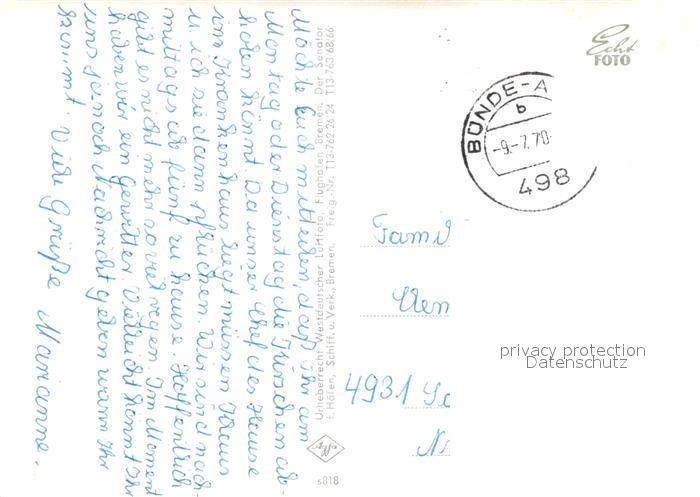 Möchte Euch mitteilen, daß Ihr am
Montag oder Dienstag die Kirschen ab-
holen könnt. Da unser Chef des Hauses
im Krankenhaus liegt müssen Klaus
u. ich sie dann pflücken. Wir sind nach-
mittags ab fünf zu hause. Hoffentlich
gibt es nicht mehr so viel regen. Im Moment
haben wir ein Gewitter. Vielleicht könnt Ihr
uns ja noch Nachricht geben wann Ihr
kommt. Viele Grüße Marianne.
Urheberrecht Westdeutscher Luftfoto, Flughafen Bremen. Der Senator
f. Häfen, Schiff. u. Verk., Bremen. Freig.-Nr. T13-762 26 24 T13-763 68/66
Echt
FOTO
BÜNDE-A
b
-9.-7.70-
498
Fami
4931
privacy protection
Datenschutz
s818